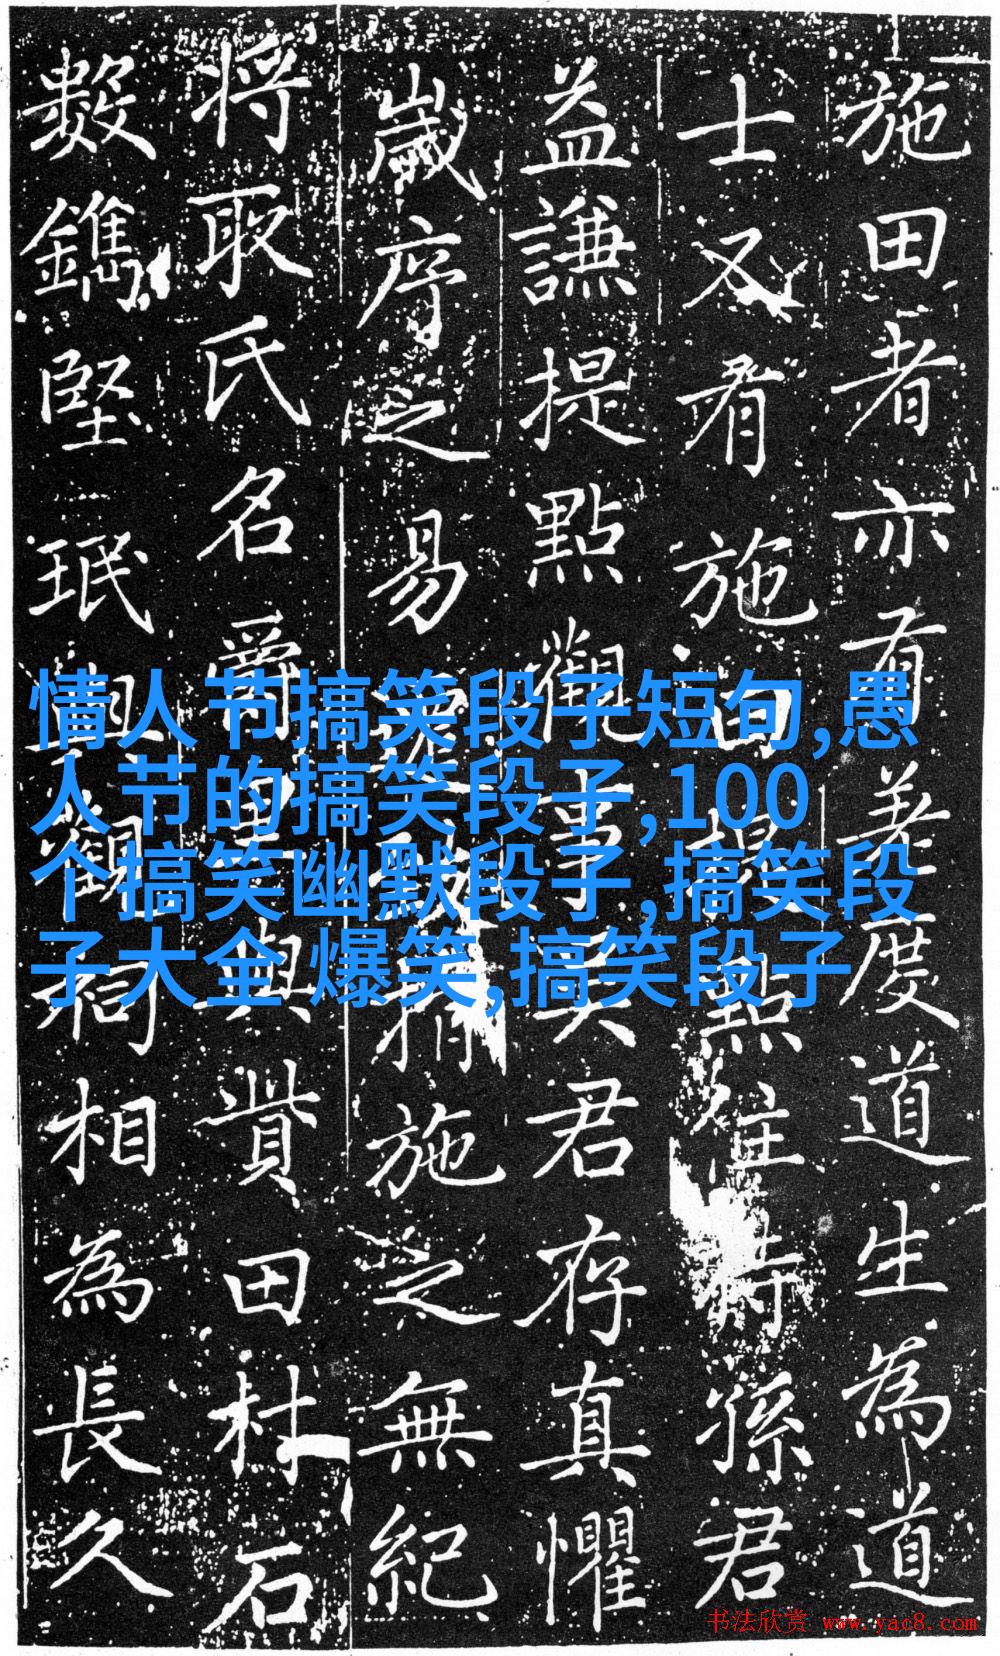 施田者亦有差度道生為道
士又有施田提點住持孫君
益謙提點觀事吳君存真懼
歲序之易捐施之無紀
將取氏名爵里與貲田村石
數鐫堅珉觀祠相為長久
情人节搞笑段子短句,愚
人节的搞笑段子,100
个搞笑幽默段子,搞笑段
子大全 爆笑,搞笑段子
书法欣赏 www.yac8.com